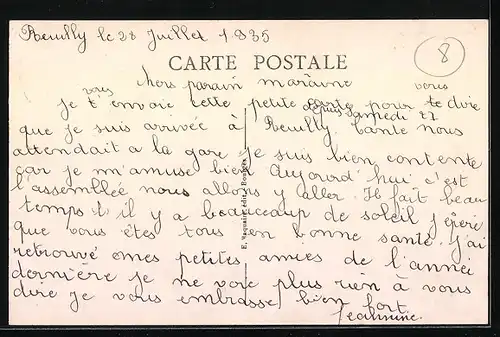 Reuilly le 28 Juillet 1935
8
CARTE POSTALE
chers parain maraine
vous vous
je t'envoie cette petite carte pour te dire
depuis samedi 27
que je suis arrivée à Reuilly. tante nous
attendait a la gare je suis bien contente
car je m'amuse bien Aujourd'hui c'est
l'assemblée nous allons y aller. Il fait beau
temps il y a beaucoup de soleil j'éspère
que vous êtes tous en bonne santé. J'ai
retrouvé mes petites amies de l'année
dernière je ne voie plus rien à vous
dire je vous embrasse bien fort
Jeannine.
E. Maquaire, édit., Bourges